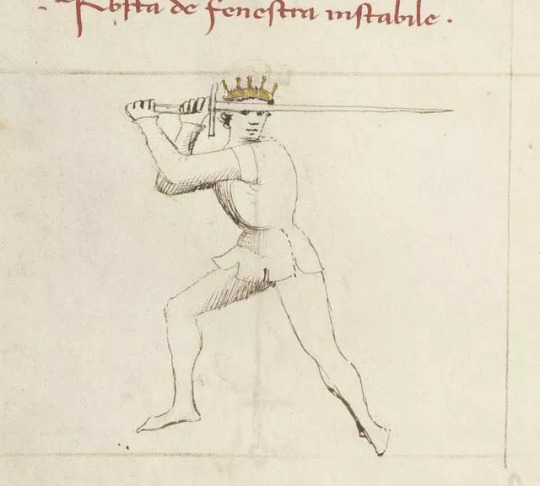 Posta de fenestra instabile.